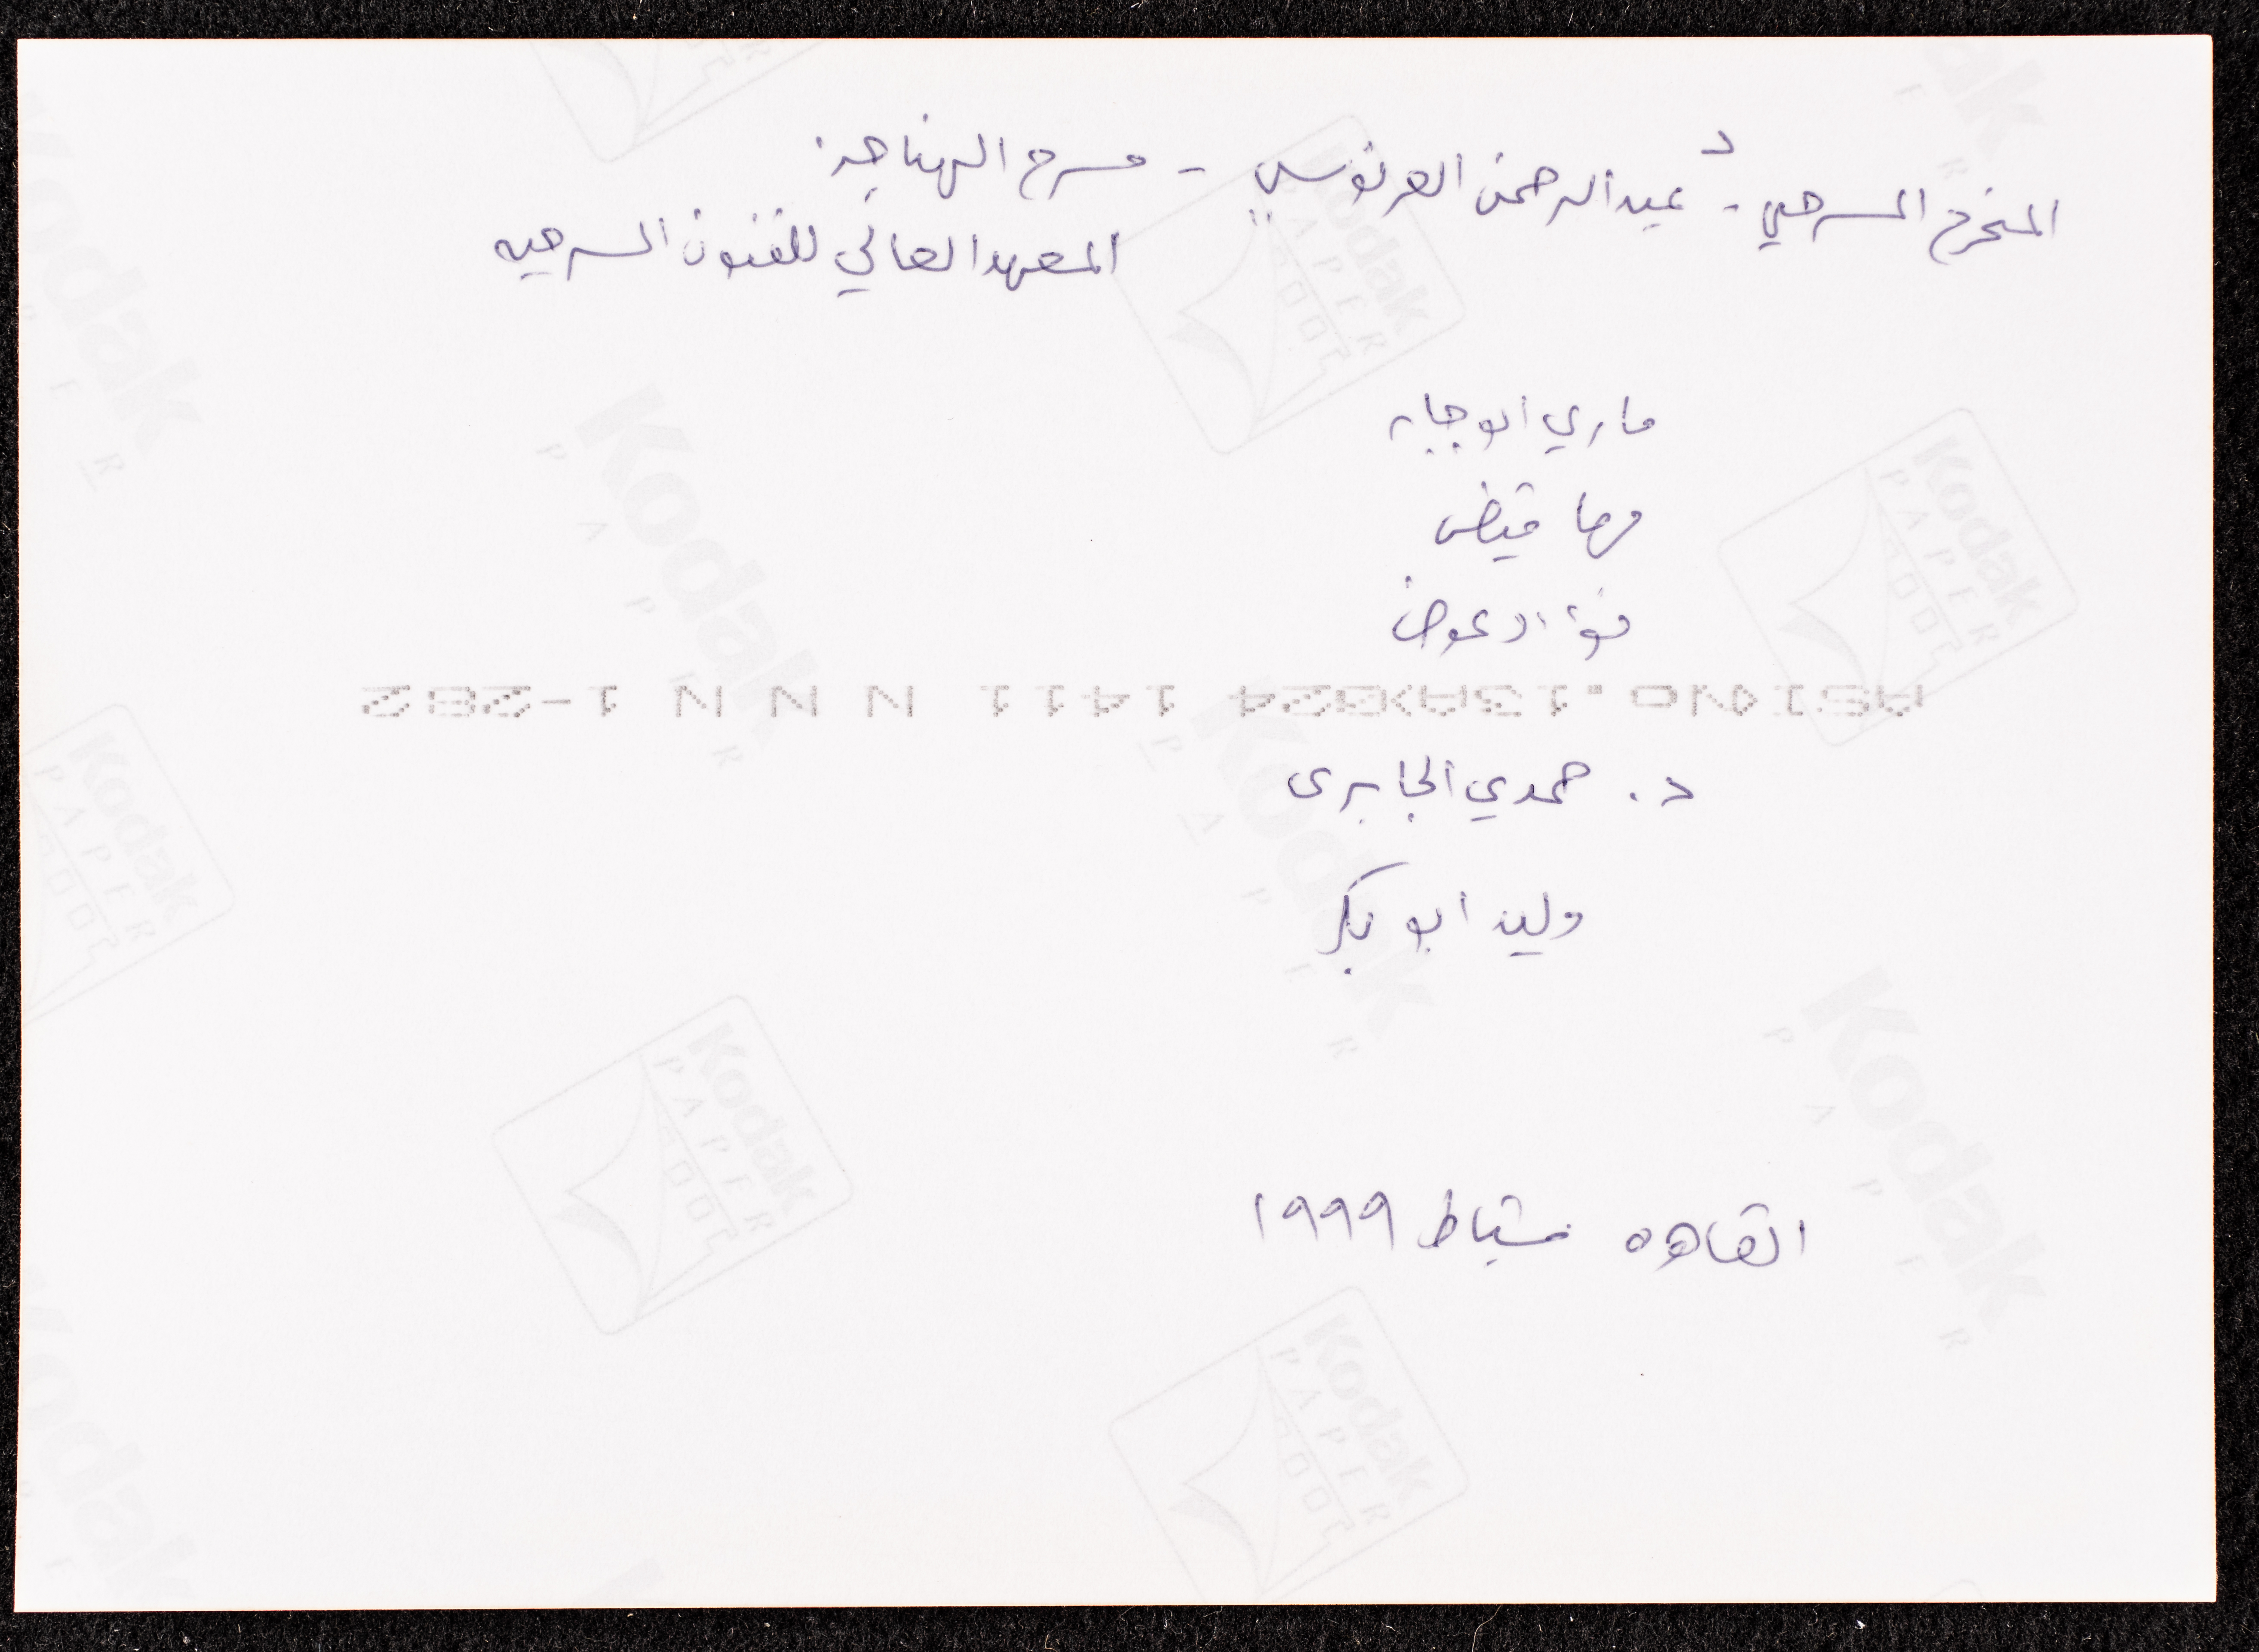 المخرج المسرحي - د عبد الرحمن العرنوسي - مسرح الهناجر
المعهد العالي للفنون المسرحيه
ماري ابو جابر
مها
فؤاد عوض
ASI4NO.13A>024 1411 N N N 1-282
د. حمدي الجابرى
وليد ابو بكر
القاهره شباط ١٩٩٩
Kodak
PAPER